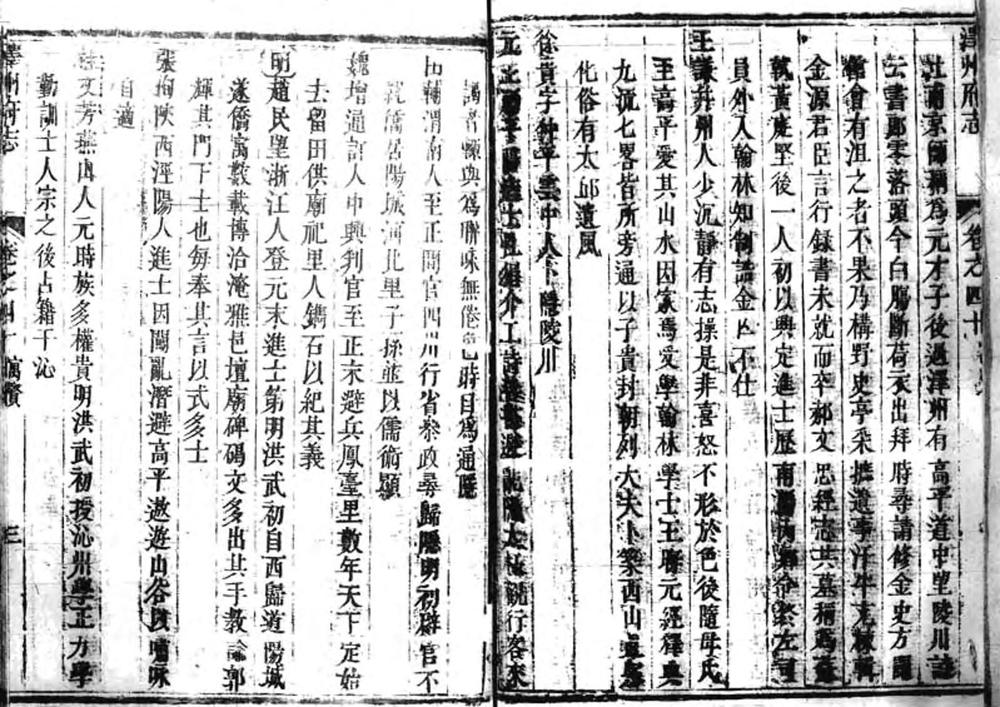 澤州府志
卷之四十
往南京師稱為元才子後過澤州有高平道中望陵川詩
云書郎零落頭今白腸斷荷衣出拜時尋請修金史方開
館會有沮之者不果乃構野史亭采摭遺事汗牛充棟輯
金源君臣言行録書未就而卒郝文忠經志其墓稱為蘇
黃庭堅後一人初以興定進士歷南陽內鄉令累左司
員外入翰林知制誥金亡不仕
王謙并州人少沉靜有志操是非喜怒不形於色後隨母氏
至高平愛其山水因家焉受學翰林學士王
九流七畧皆所旁通以子貴封朝列大夫卜築西山
化俗有太邱遺風
徐貴字仲平雲中人隱陵川
元
謁者輒與為聯咏無倦色時目為通隱
田輔渭南人至正間官四川行省叅政尋歸隱明初辟官不
就僑居陽城河北里子孫並以儒術顯
魏增通許人中興判官至正末避兵鳳臺里數年天下定始
去留田供廟祀里人鐫石以紀其義
明趙民望浙江人登元末進士第明洪武初自西歸道陽城
遂僑寓數載博洽淹雅邑壇廟碑碣文多出其手教諭郭
輝其門下士也每奉其言以式多士
張拘陝西涇陽人進士因闖亂潛避高平遨遊山谷以嘯咏
自適
文芳燕山人元時族多權貴明洪武初授沁州學正力學
勤訓士人宗之後占籍于沁
澤州府志
卷之四十
寓賢
三